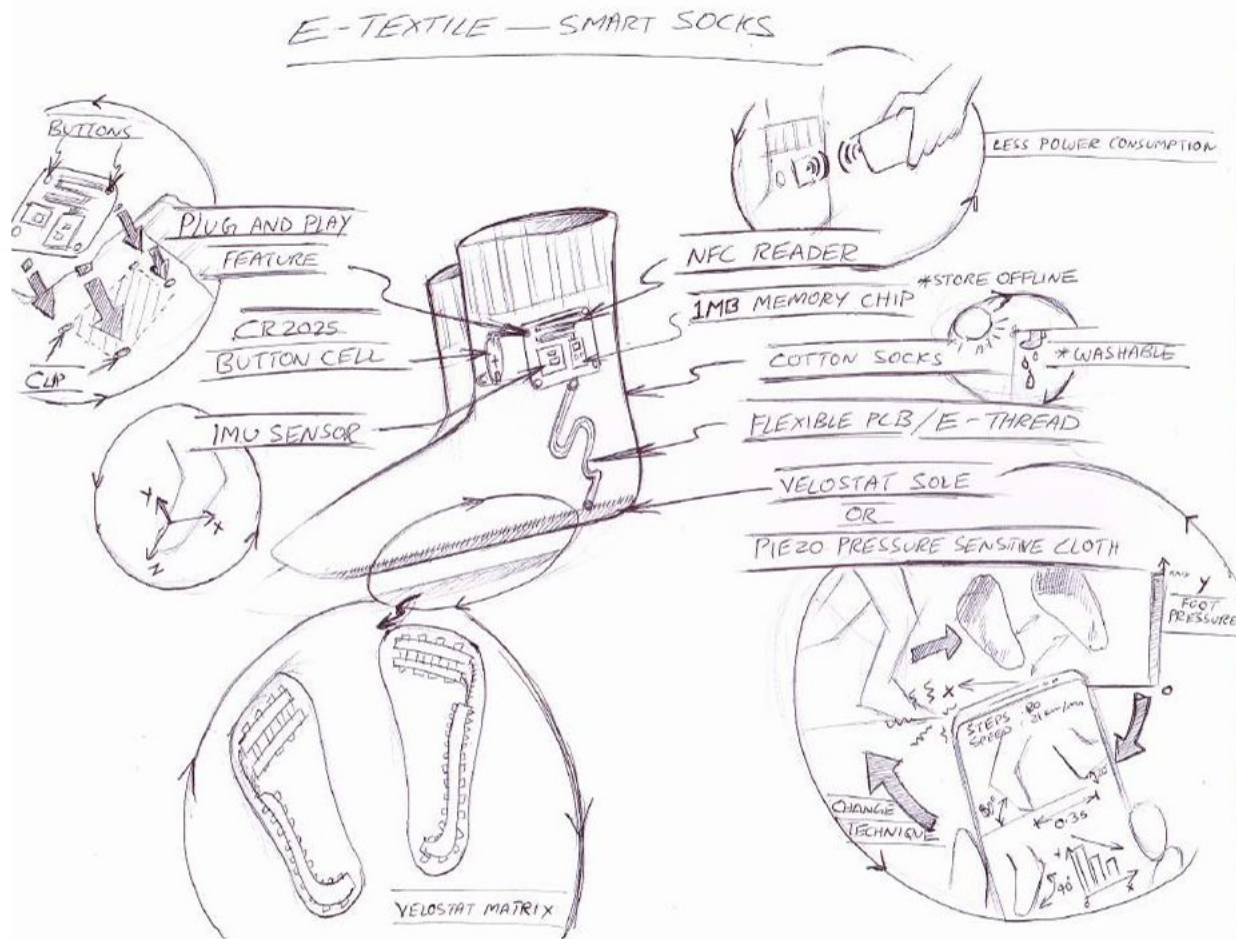 E-TEXTILE — SMART SOCKS
BUTTONS
PLUG AND PLAY
FEATURE
CR2025
BUTTON CELL
CLAP
IMU SENSOR
Y
X
Z
LESS POWER CONSUMPTION
NFC READER
1MB MEMORY CHIP
*STORE OFFLINE
COTTON SOCKS
*WASHABLE
FLEXIBLE PCB/E-THREAD
VELOSTAT SOLE
OR
PIEZO PRESSURE SENSITIVE CLOTH
Y
FOOT
PRESSURE
X
0
STEPS : 20
SPEED :
0.35
90°
X
CHANGE
TECHNIQUE
VELOSTAT MATRIX